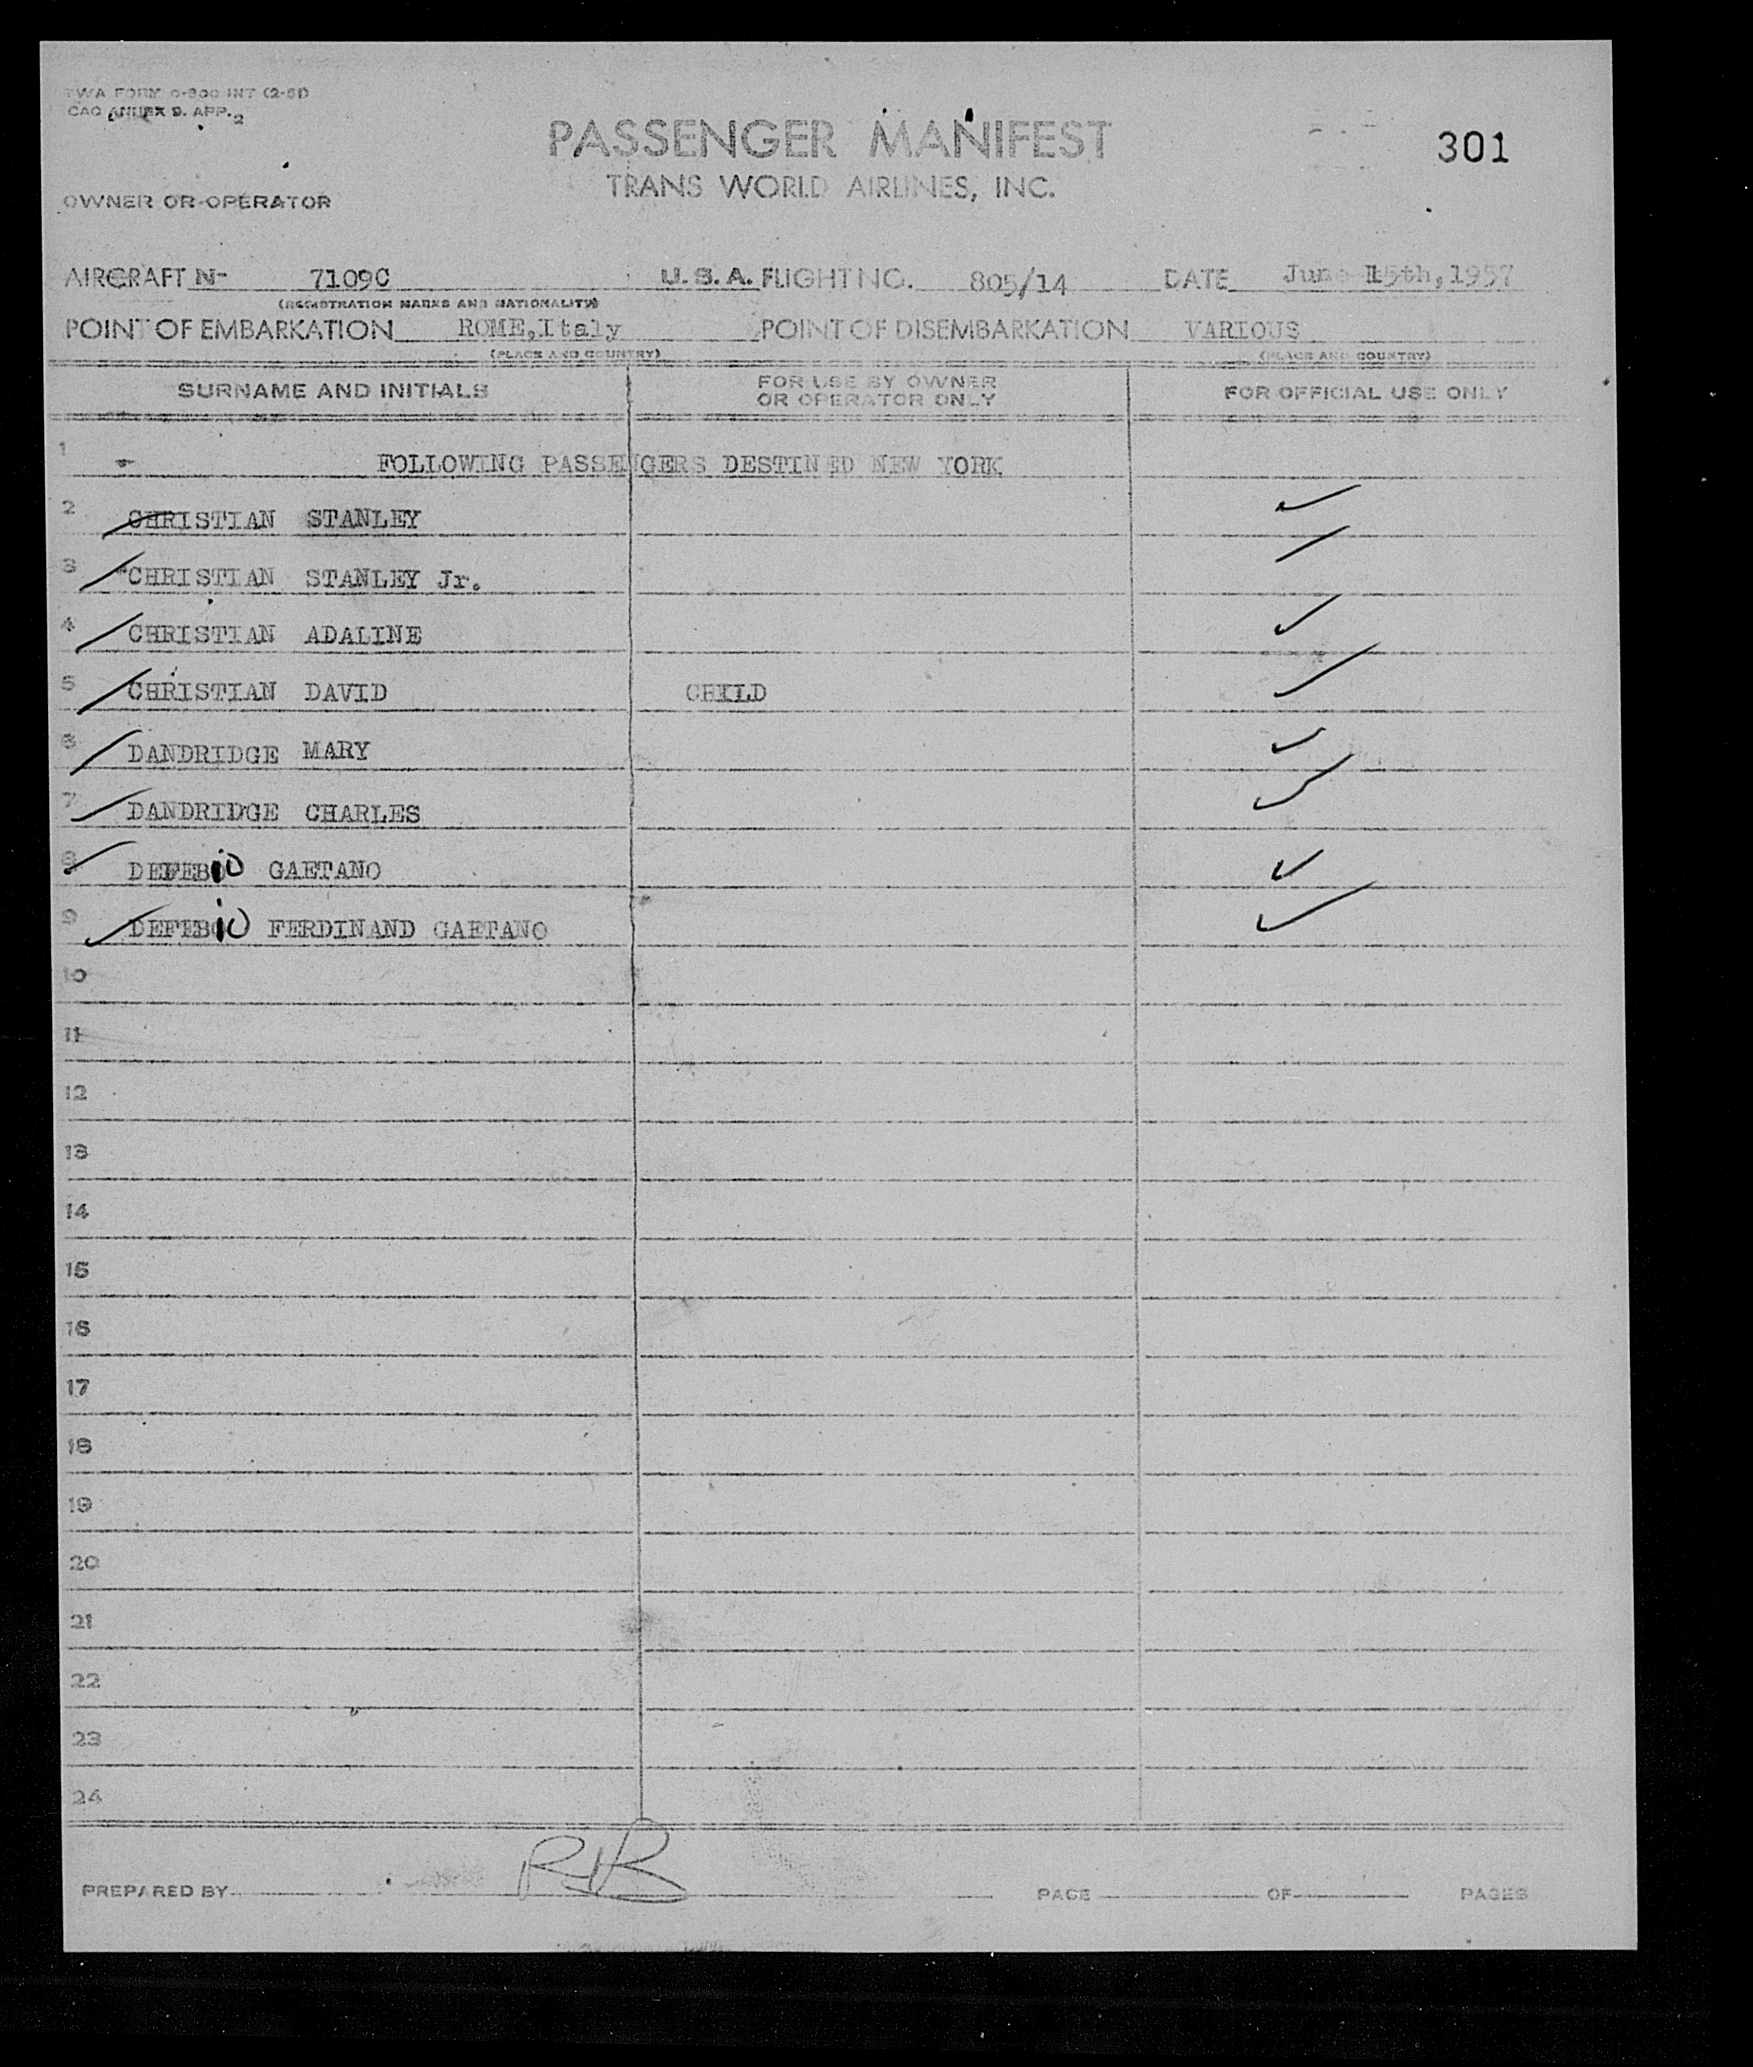 TWA FORM 0-300 INT (2-51)
CAO ANNEX 9. APP. 2
PASSENGER MANIFEST
301
TRANS WORLD AIRLINES, INC.
OWNER OR OPERATOR
AIRCRAFT N- 7109C U. S. A. FLIGHT NO. 805/14 DATE June 15th, 1957
(REGISTRATION MARKS AND NATIONALITY)
POINT OF EMBARKATION ROME, Italy POINT OF DISEMBARKATION VARIOUS
(PLACE AND COUNTRY) (PLACE AND COUNTRY)
SURNAME AND INITIALS FOR USE BY OWNER OR OPERATOR ONLY FOR OFFICIAL USE ONLY
1 FOLLOWING PASSENGERS DESTINED NEW YORK
2 CHRISTIAN STANLEY
3 CHRISTIAN STANLEY Jr.
4 CHRISTIAN ADALINE
5 CHRISTIAN DAVID CHILD
6 DANDRIDGE MARY
7 DANDRIDGE CHARLES
8 DEFEBIO GAETANO
9 DEFEBIO FERDINAND GAETANO
10
11
12
13
14
15
16
17
18
19
20
21
22
23
24
PREPARED BY PAGE OF PAGES